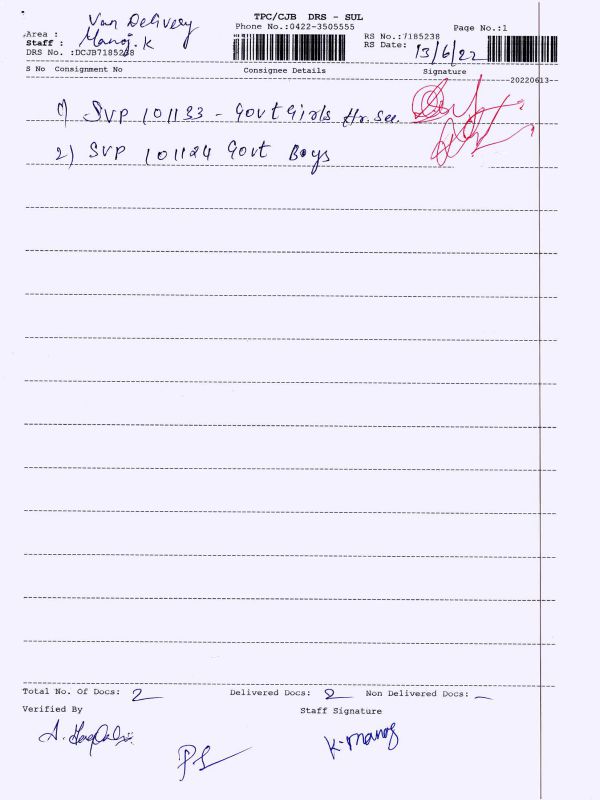 TPC/CJB DRS - SUL
Area : Van Delivery
Phone No.:0422-3505555
RS No.:7185238
Page No.:1
Staff : Manoj.K
RS Date: 13/6/22
DRS No. :DCJB7185238
S No Consignment No Consignee Details Signature
20220613
1) SVP 101133 - Govt Girls Hr. Sec.
2) SVP 101124 Govt Boys
Total No. Of Docs: 2 Delivered Docs: 2 Non Delivered Docs: —
Verified By Staff Signature
K. Manoj